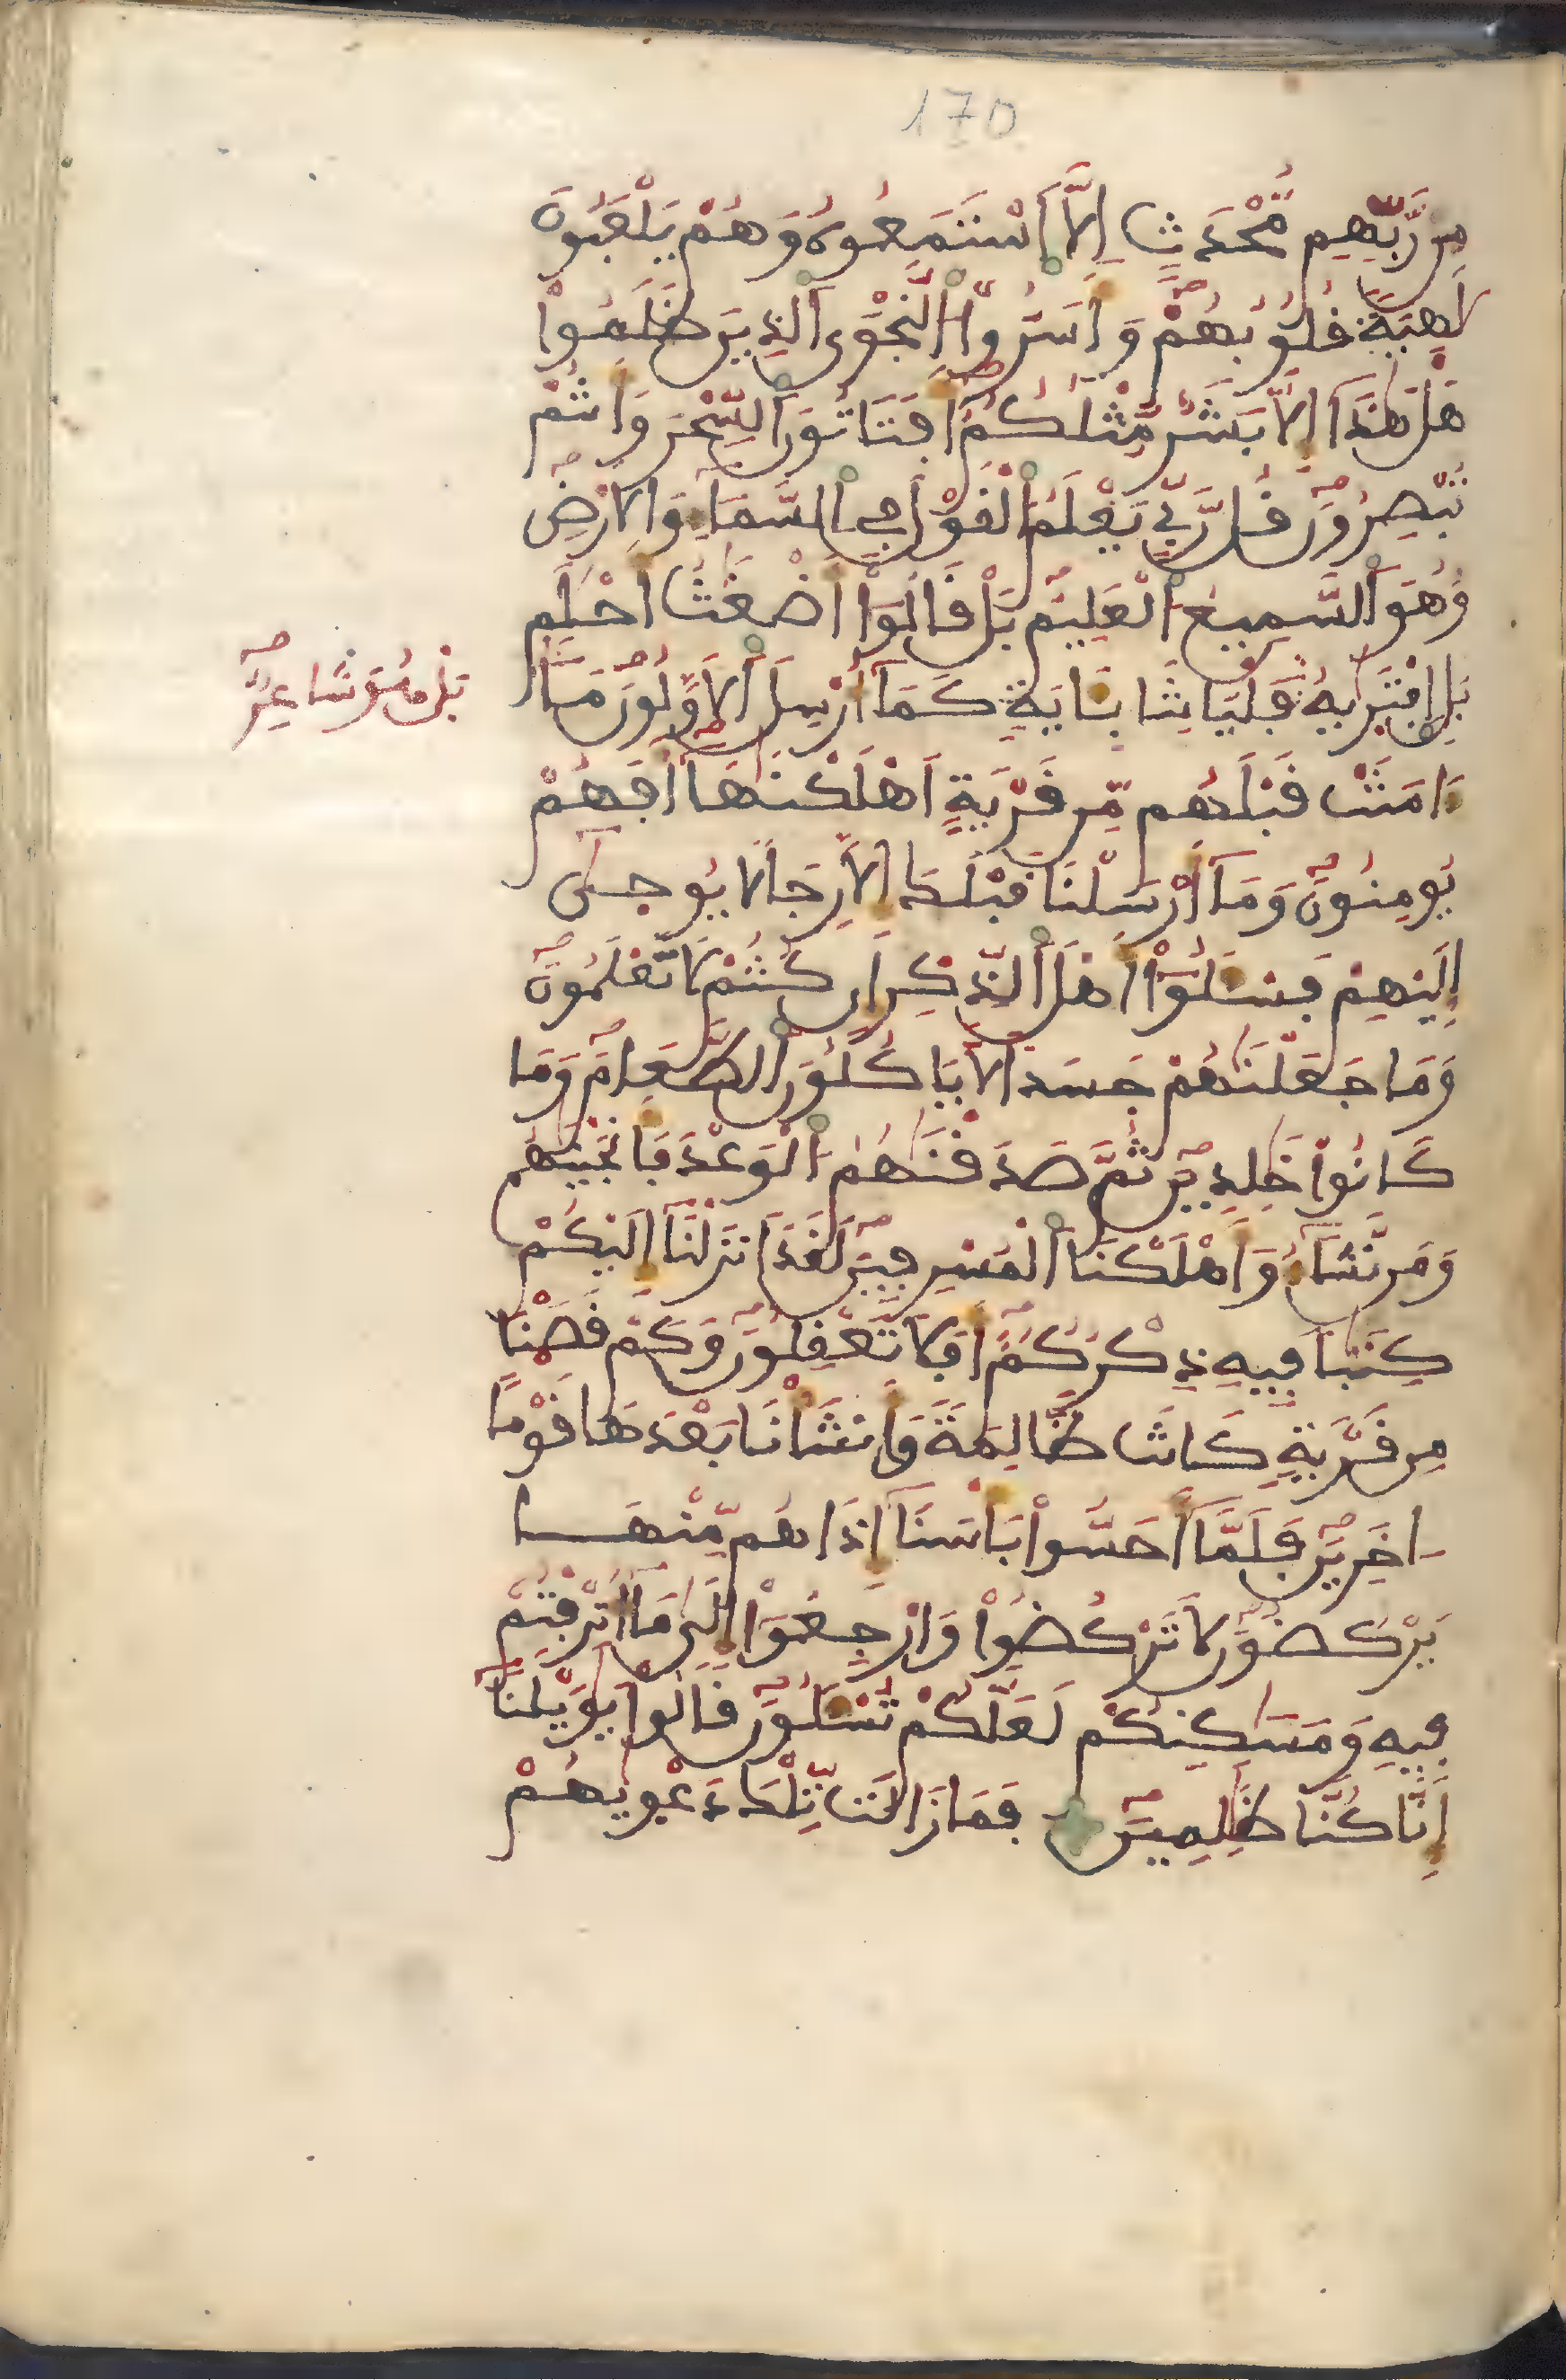 170
مِّن رَّبِّهِم مُّحْدَثٍ اِلَّا اَسْتَمَعُوهُ وَهُمْ يَلْعَبُونَ
لَٰهِيَةً قُلُوبُهُمْ وَأَسَرُّواْ النَّجْوَى الذِينَ ظَلَمُواْ
هَلْ هَٰذَا إِلَّا بَشَرٌ مِّثْلُكُمْ أَفَتَاتُونَ السِّحْرَ وَأَنتُمْ
تُبْصِرُونَ قُل رَّبِّي يَعْلَمُ الْقَوْلَ فِي السَّمَاءِ وَالَارْضِ
وَهُوَ السَّمِيعُ الْعَلِيمُ بَلْ قَالُواْ أَضْغَٰثُ أَحْلَٰمٍ
بَلِ اِفْتَرَىٰهُ فَلْيَاتِنَا بِـَٔايَةٍ كَمَا أُرْسِلَ الَاوَّلُونَ مَا
بَلْ هُوَ شَاعِرٌ
ءَامَنَتْ قَبْلَهُم مِّن قَرْيَةٍ اَهْلَكْنَٰهَا أَفَهُمْ
يُومِنُونَ وَمَا أَرْسَلْنَا قَبْلَكَ إِلَّا رِجَالًا يُوحَىٰ
إِلَيْهِمْ فَسْـَٔلُواْ أَهْلَ الذِّكْرِ إِن كُنتُمْ لَا تَعْلَمُونَ
وَمَا جَعَلْنَٰهُمْ جَسَدًا لَّا يَاكُلُونَ الطَّعَامَ وَمَا
كَانُواْ خَٰلِدِينَ ثُمَّ صَدَقْنَٰهُمُ الْوَعْدَ فَأَنجَيْنَٰهُمْ
وَمَن نَّشَاءُ وَأَهْلَكْنَا الْمُسْرِفِينَ لَقَدَ اَنزَلْنَا إِلَيْكُمْ
كِتَٰبًا فِيهِ ذِكْرُكُمْ أَفَلَا تَعْقِلُونَ وَكَمْ قَصَمْنَا
مِن قَرْيَةٍ كَانَتْ ظَالِمَةً وَأَنشَأْنَا بَعْدَهَا قَوْمًا
اٰخَرِينَ فَلَمَّا أَحَسُّواْ بَاسَنَا إِذَا هُم مِّنْهَا
يَرْكُضُونَ لَا تَرْكُضُواْ وَارْجِعُواْ إِلَىٰ مَا أُتْرِفْتُمْ
فِيهِ وَمَسَٰكِنِكُمْ لَعَلَّكُمْ تُسْـَٔلُونَ قَالُواْ يَٰوَيْلَنَا
إِنَّا كُنَّا ظَٰلِمِينَ فَمَا زَالَت تِّلْكَ دَعْوٰىهُمْ